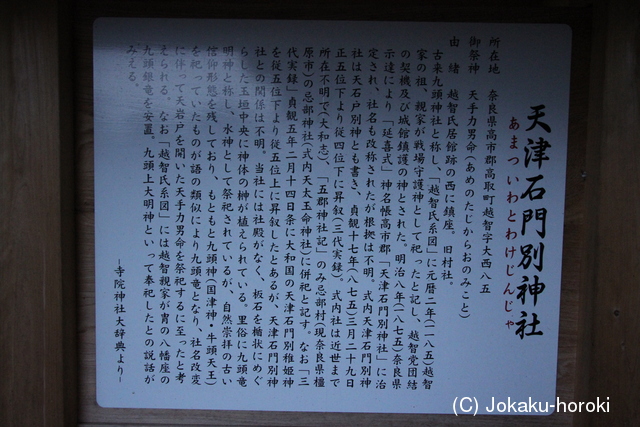 天津石門別神社
あまついわとわけじんじゃ
所在地　奈良県高市郡高取町越智字大西八五
御祭神　天手力男命(あめのたじからおのみこと)
由　緒　越智氏居館跡の西に鎮座。旧村社。
古来九頭神社と称し、「越智氏系図」に元暦二年(一一八五)越智
家の祖、親家が戦場守護神として祀ったと記し、越智党団結
の契機及び城館鎮護の神とされた。明治八年(一八七五)奈良県
示達により「延喜式」神名帳高市郡「天津石門別神社」に治
定され、社名も改称されたが根拠は不明。式内天津石門別神
社は天石戸別神とも書き、貞観十七年(八七五)三月二十九日
正五位下より従四位下に昇叙(三代実録)。式内社は近世まで
所在不明で(大和志)、「五郡神社記」のみ忌部村(現奈良県橿
原市)の忌部神社(式内天太玉命神社)に併祀と記す。なお「三
代実録」貞観五年二月十四日条に大和国の天津石門別稚姫神
を従五位下より従五位上に昇叙したとあるが、天津石門別神
社との関係は不明。当社には社殿がなく、板石を楯状にめぐ
らした玉垣中央に神体の榊が植えられている。里俗に九頭竜
明神と称し、水神として祭祀されているが、自然崇拝の古い
信仰形態を残しており、もともと九頭神(国津神・牛頭天王)
を祀っていたものが語の類似により九頭竜となり、社名改変
に伴って天岩戸を開いた天手力男命を祭祀するに至ったと考
えられる。なお「越智氏系図」には越智親家が冑の八幡座の
九頭銀竜を安置。九頭上大明神といって奉祀したとの説話が
みえる。
―寺院神社大辞典より―
(C) Jokaku-horoki